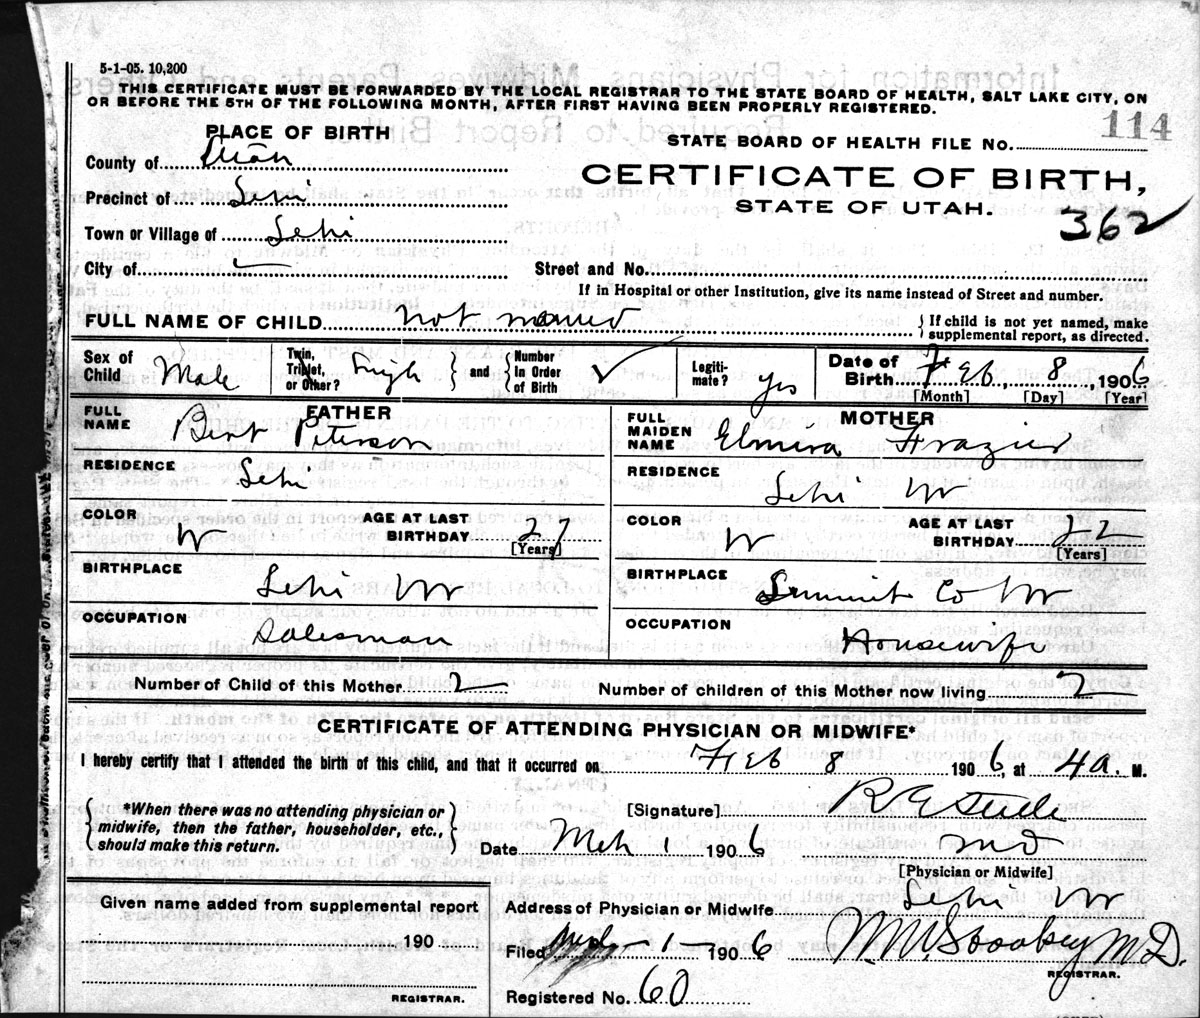 5-1-05. 10,200
THIS CERTIFICATE MUST BE FORWARDED BY THE LOCAL REGISTRAR TO THE STATE BOARD OF HEALTH, SALT LAKE CITY, ON
OR BEFORE THE 5TH OF THE FOLLOWING MONTH, AFTER FIRST HAVING BEEN PROPERLY REGISTERED.
114
PLACE OF BIRTH
STATE BOARD OF HEALTH FILE NO.
County of Utah
CERTIFICATE OF BIRTH,
Precinct of Lehi
STATE OF UTAH.
362
Town or Village of Lehi
City of
Street and No.
If in Hospital or other Institution, give its name instead of Street and number.
FULL NAME OF CHILD not named
{If child is not yet named, make supplemental report, as directed.
Sex of Child Male
Twin, Triplet, or Other? Single } and { Number in Order of Birth ✓
Legitimate? yes
Date of Birth Feb 8, 1906
[Month] [Day] [Year]
FATHER
FULL NAME Bert Peterson
RESIDENCE Lehi
COLOR W
AGE AT LAST BIRTHDAY 27 [Years]
BIRTHPLACE Lehi
OCCUPATION Salesman
MOTHER
FULL MAIDEN NAME Elmira Frazier
RESIDENCE Lehi
COLOR W
AGE AT LAST BIRTHDAY 22 [Years]
BIRTHPLACE Summit Co
OCCUPATION Housewife
Number of Child of this Mother 2
Number of children of this Mother now living 2
CERTIFICATE OF ATTENDING PHYSICIAN OR MIDWIFE*
I hereby certify that I attended the birth of this child, and that it occurred on Feb 8 1906, at 4 a. M.
{*When there was no attending physician or midwife, then the father, householder, etc., should make this return.}
[Signature] R E Steele
Date Mch 1 1906
MD
[Physician or Midwife]
Given name added from supplemental report
Address of Physician or Midwife Lehi
190
Filed 1 1906
M.D.
REGISTRAR.
REGISTRAR.
Registered No. 60